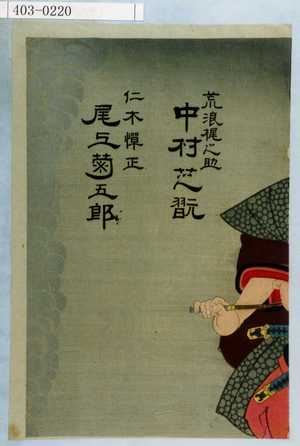 403-0220
荒浪梶之助
中村芝翫
仁木憚正
尾上菊五郎